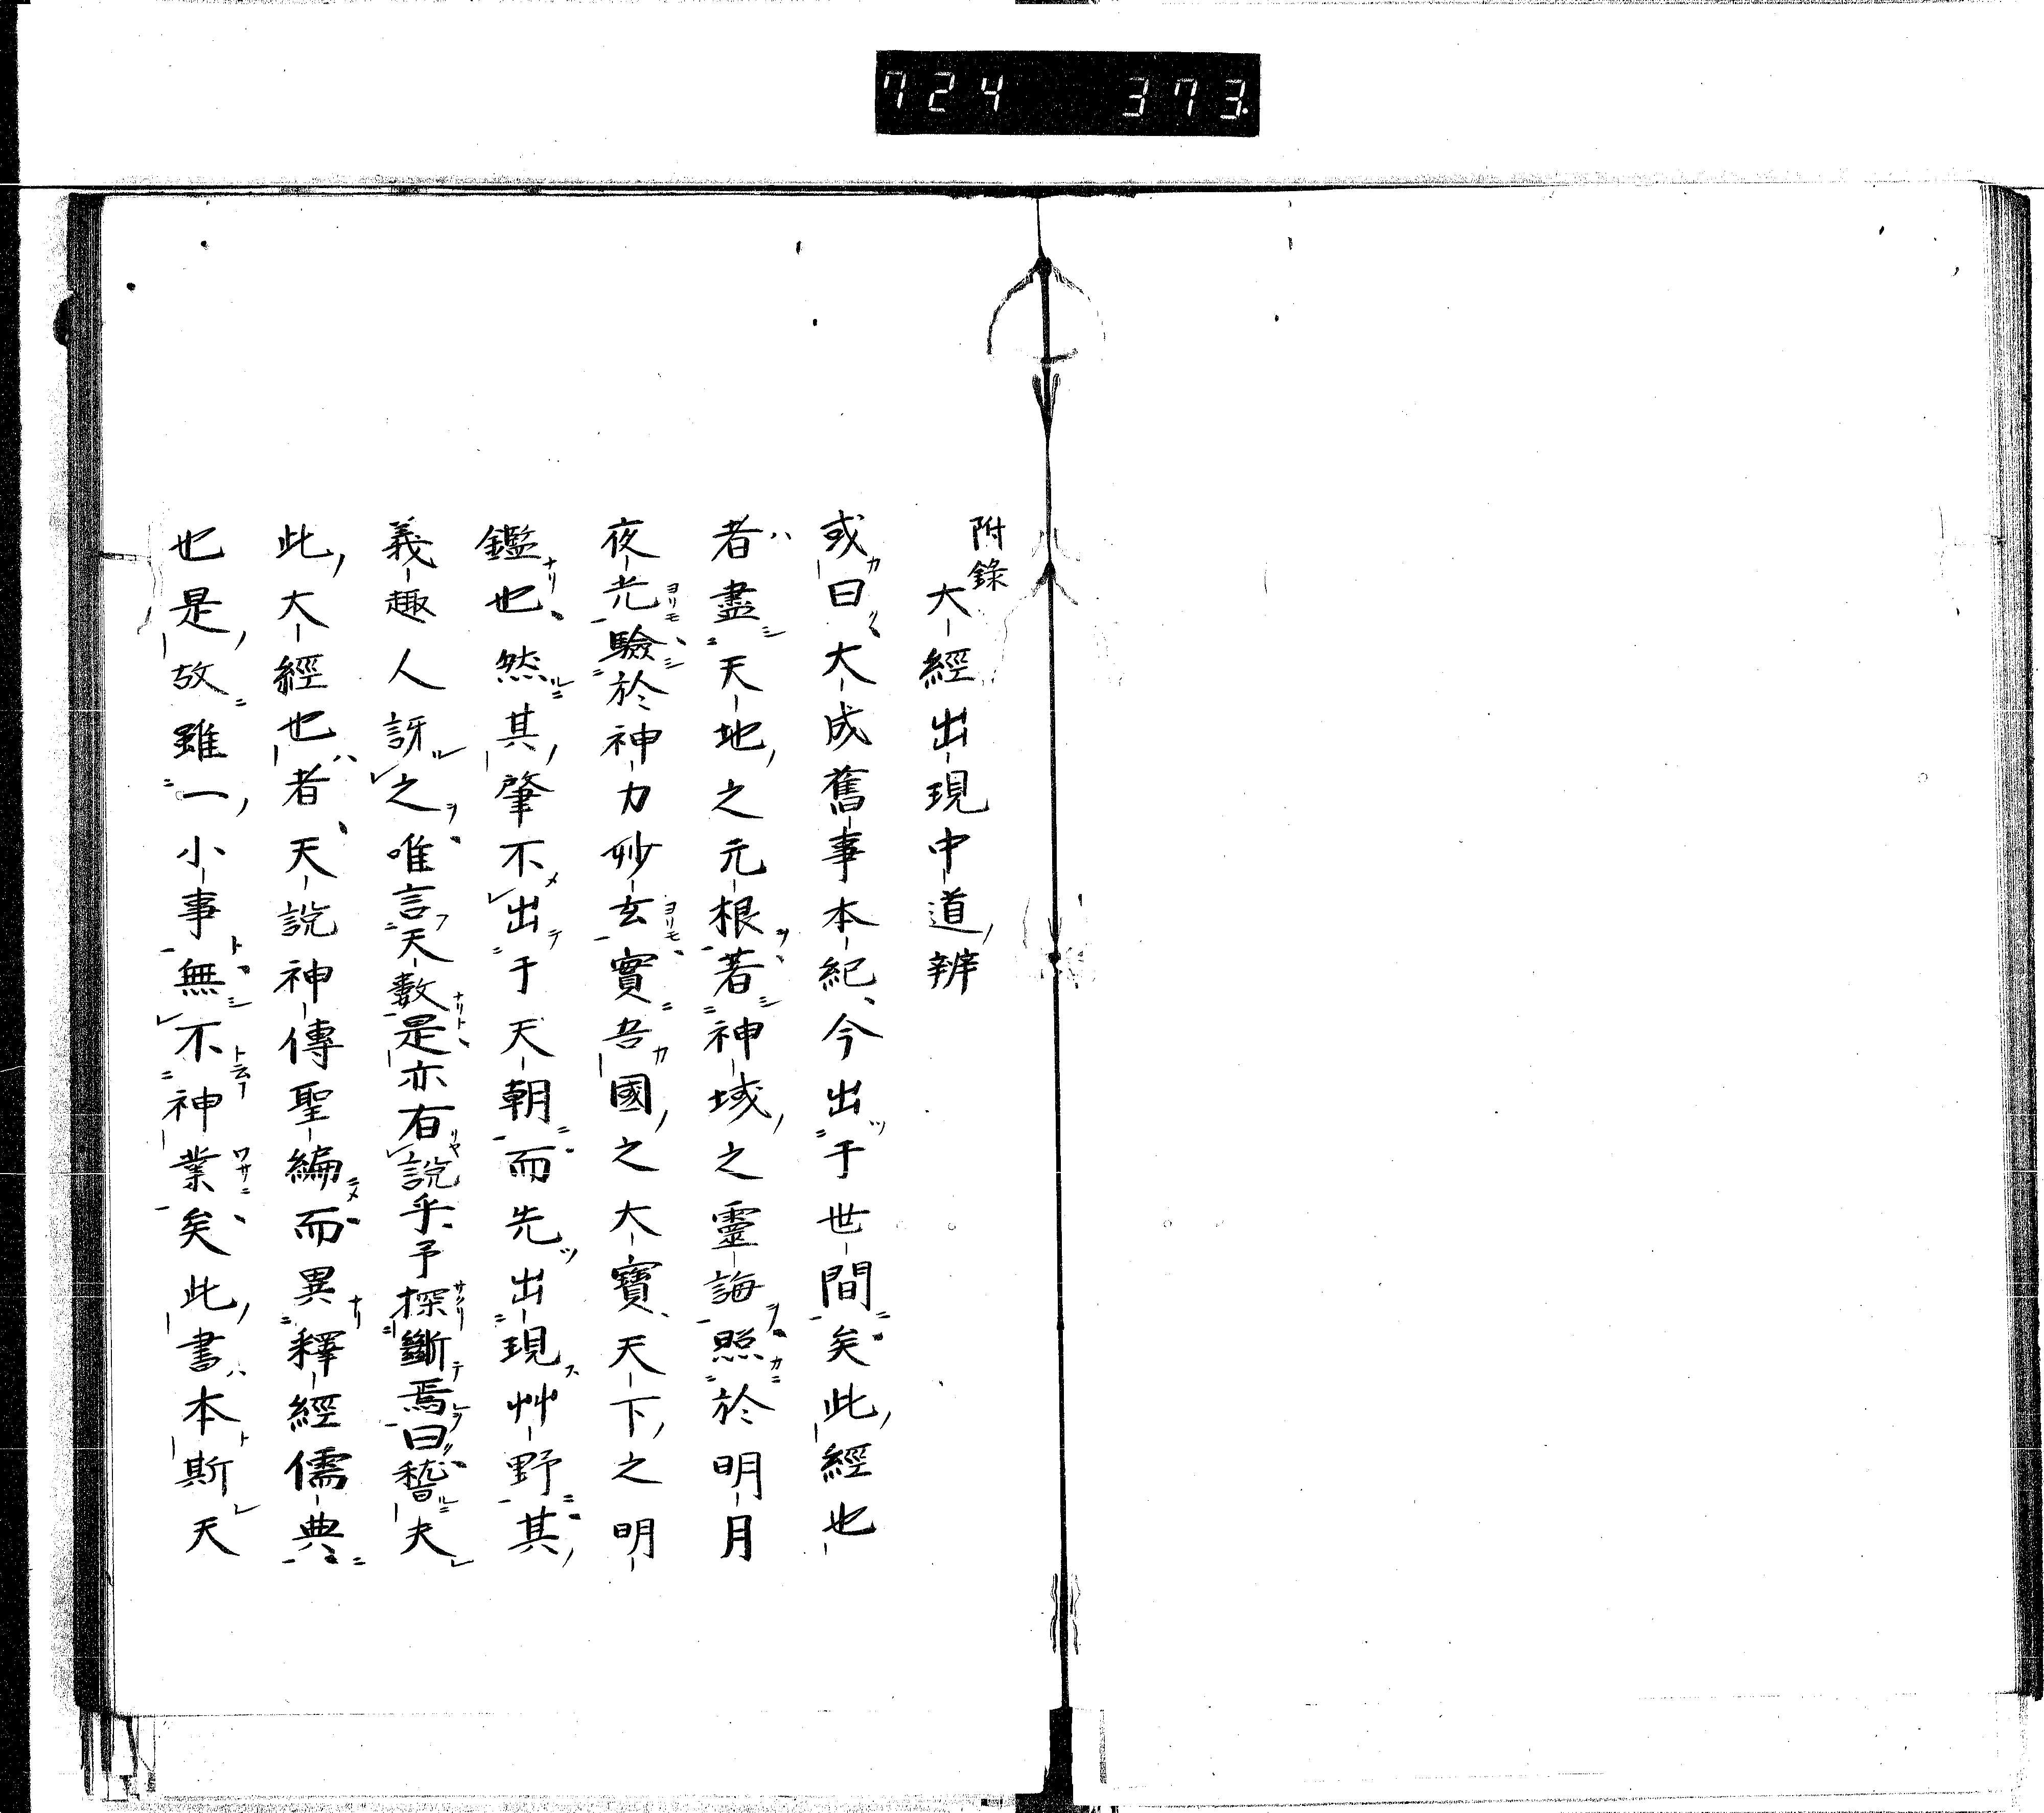 724 373
附錄
大經出現中道辨
或曰大成舊事本紀今出于世間矣此經也
者盡天地之元根著神域之靈誨照於明月
夜光驗於神力妙玄實吾國之大寶天下之明
鑑也然其肇不出于天朝而先出現艸野其
義趣人訝之唯言天數是亦有說乎予探斷焉曰稽夫
此大經也者天說神傳聖編而異釋經儒典
也是故雖一小事無不神業矣此書本斯天